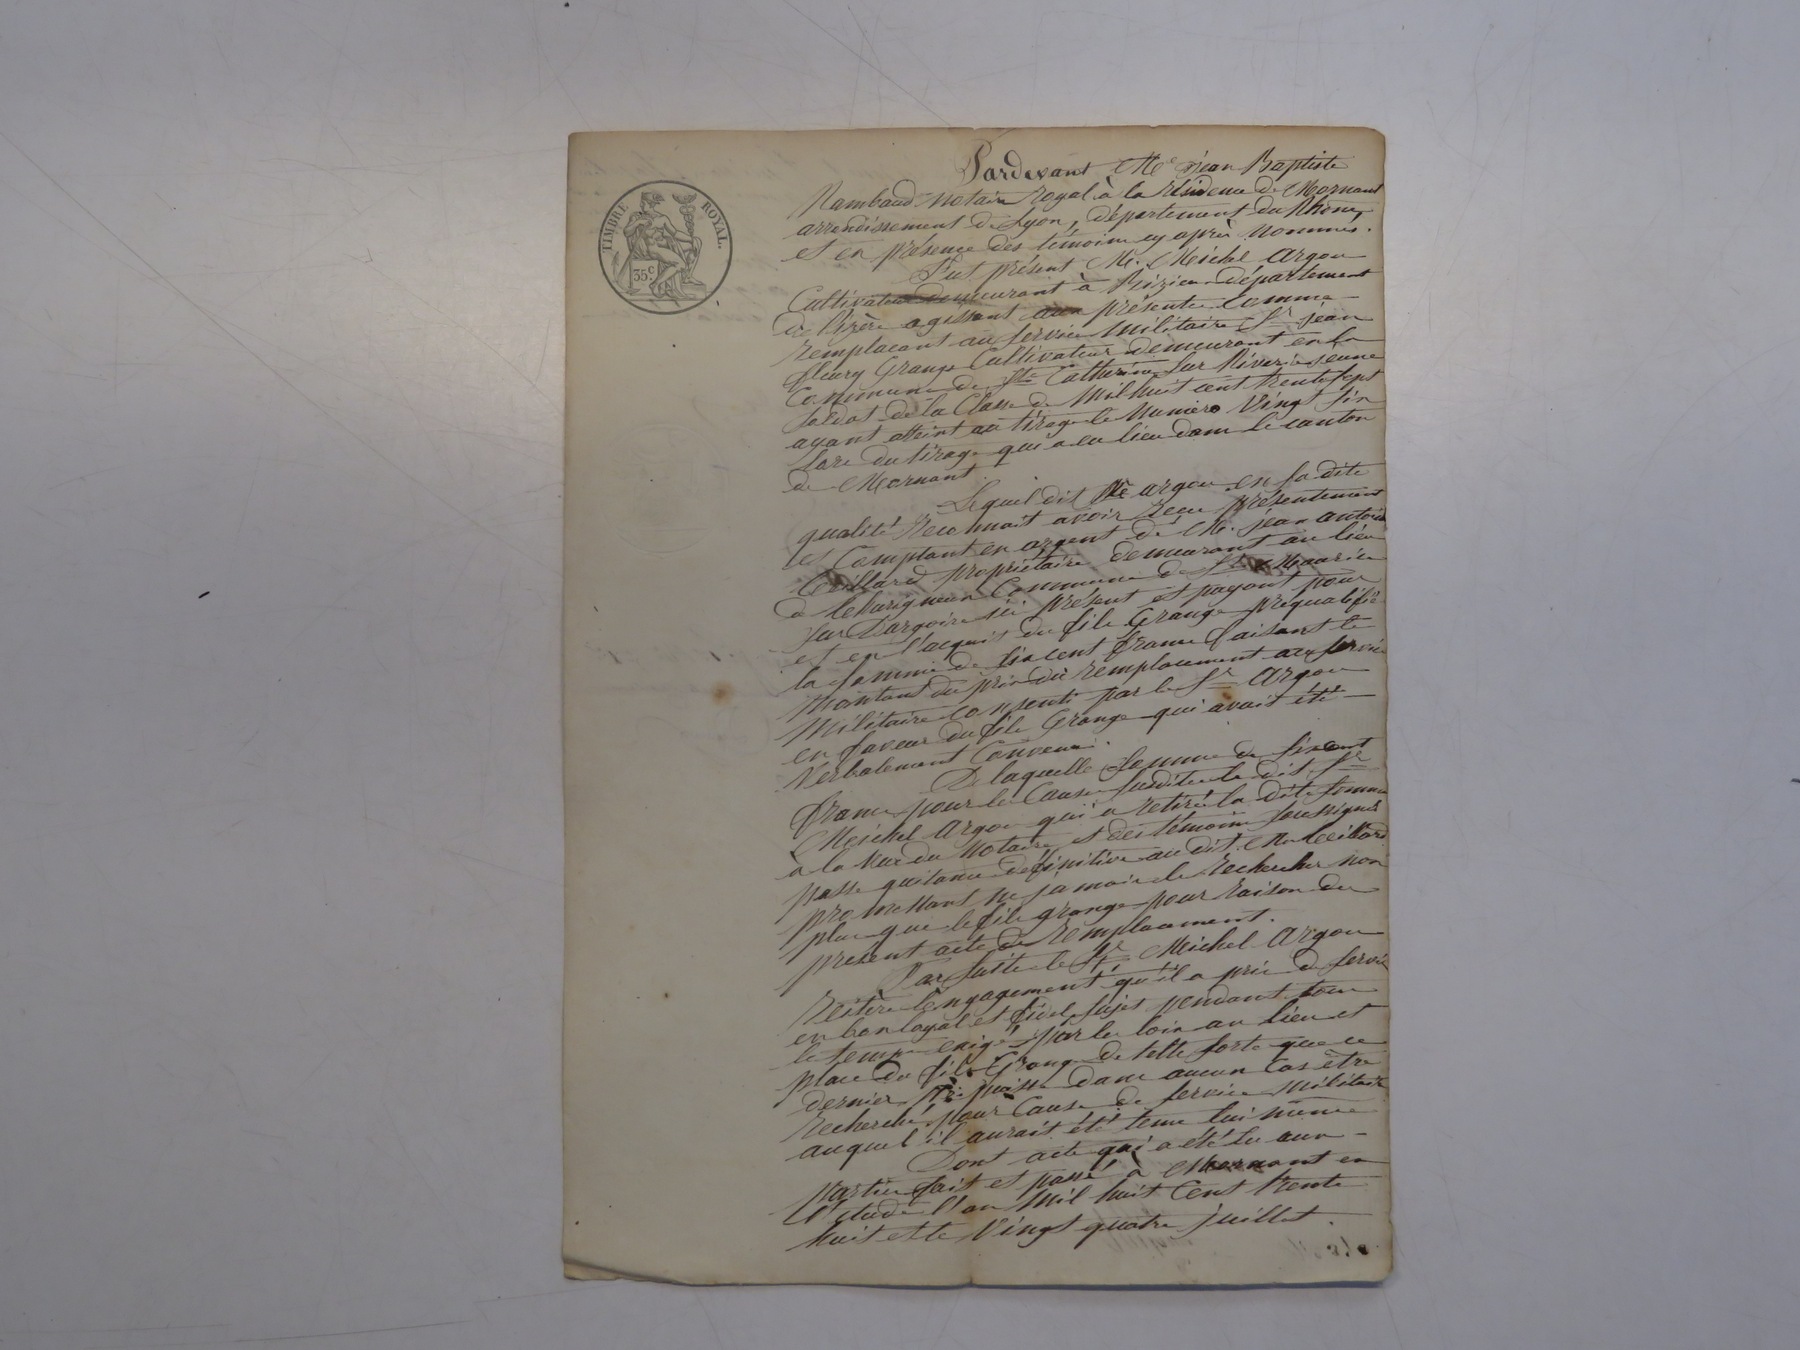 TIMBRE ROYAL.
35c
Pardevant Me jean Baptiste
Rambaud Notaire Royal à la résidence de Mornant
arrondissement de Lyon, département du Rhône,
et en présence des témoins cy après nommés.
Fut présent M. Meichel Argou
Cultivateur demeurant à département
de l'izère agissant aux présentes comme
remplaçant au service militaire Sr jean
fleury Grange Cultivateur demeurant en la
Commune de Ste Catherine sur Riverie jeune
soldat de la Classe de Mil huit cent trente sept
ayant atteint au tirage le Numéro Vingt six
lors du tirage qui a eu lieu dans le canton
de Mornant.
Lequel dit Argou en sa dite
qualité reconnait avoir reçu présentement
et Comptant en argent de M. jean antoine
propriétaire demeurant au lieu
de Commune de St Maurice
sur Dargoire ici présent et payant pour
et en l'acquit du fils Grange préqualifié
la somme de six cent francs faisant le
montant du prix du remplacement au service
Militaire consenti par le Sr Argou
en faveur du fils Grange qui avait été
Verbalement Convenu.
De laquelle somme de six cent
francs pour les Causes susdites le dit Sr
Meichel Argou qui a retiré la dite somme
à la vue du Notaire et des témoins soussignés
passe quitance définitive au dit M.
promettant ne jamais le rechercher non
plus que le fils grange pour raison du
present acte de remplacement.
Par suite le Sr Meichel Argou
réitère l'engagement qu'il a pris de servir
en bon loyal et fidel sujet pendant tout
le temps exigé par les lois au lieu et
place du fils Grange de telle sorte que ce
dernier ne puisse dans aucun Cas être
recherché pour Cause de service militaire
auquel il aurait été tenu lui même
Dont acte qui a été lu aux
parties fait et passé à Mornant en
l'étude l'an Mil huit Cent trente
huit et le Vingt quatre juillet.